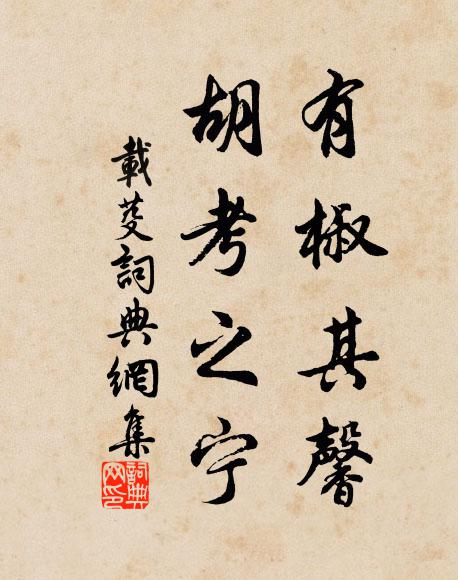 有椒其馨
胡考之宁
載芟詞典網集
詞典網印